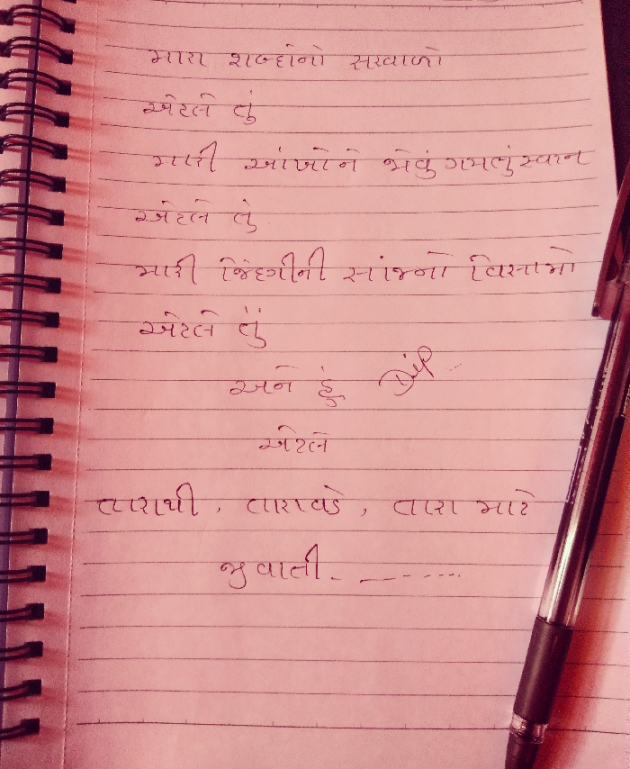 મારા શબ્દોનો સરવાળો
એટલે તું
મારી આંખોને જોવું ગમતું સ્વપ્ન
એટલે તું
મારી જિંદગીની સાંજનો વિસામો
એટલે તું
અને હું
એટલે
તારાથી, તારાવડે, તારા માટે
જીવાતી. _ _ _ - - - ....